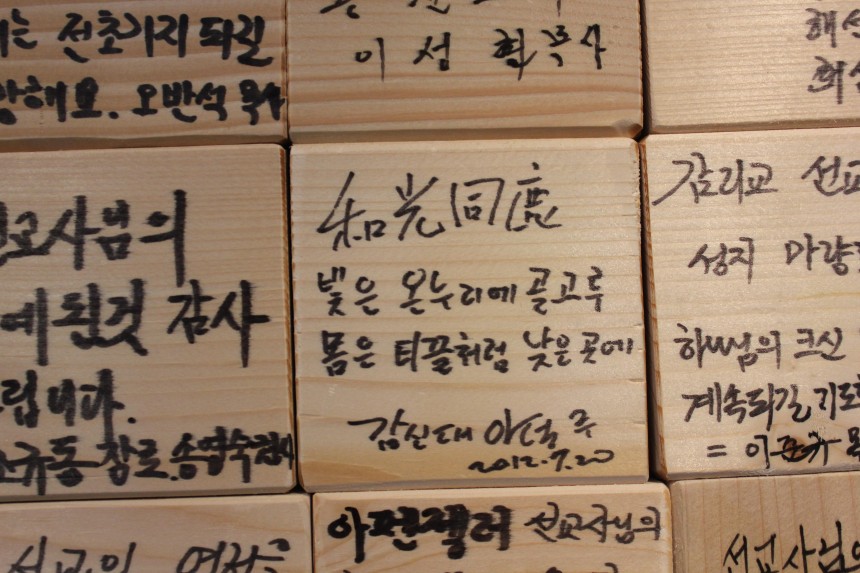 는 전초기지 되길
해요. 오반석 목사
이 성 현 목사
해
희
선교사님의
예 된것 감사
립니다.
규동 장로. 송명숙
和光同塵
빛은 온누리에 골고루
몸은 티끌처럼 낮은 곳에
감신대 이덕주
2012.7.20
감리교 선교
성지 마량
하나님의 크신
계속되길 기도
= 이준규
선교의
아펜젤러 선교사님의
선교사님의